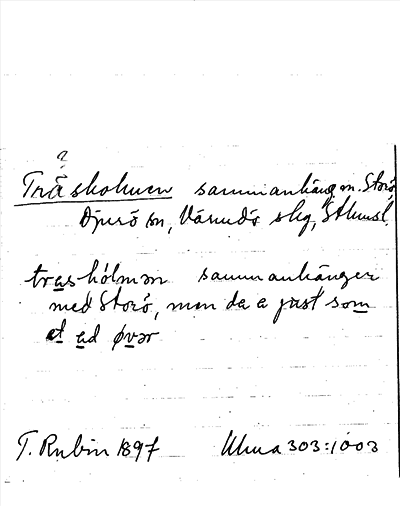 ?
Tråsholmen sammanhäng m. Storö,
Djurö sn, Värmdö skg, Sthmsl.
trashólmən sammanhänger
med Storö, men da a just som
et ad øvər
T. Rubin 1897 Uma 303:1003